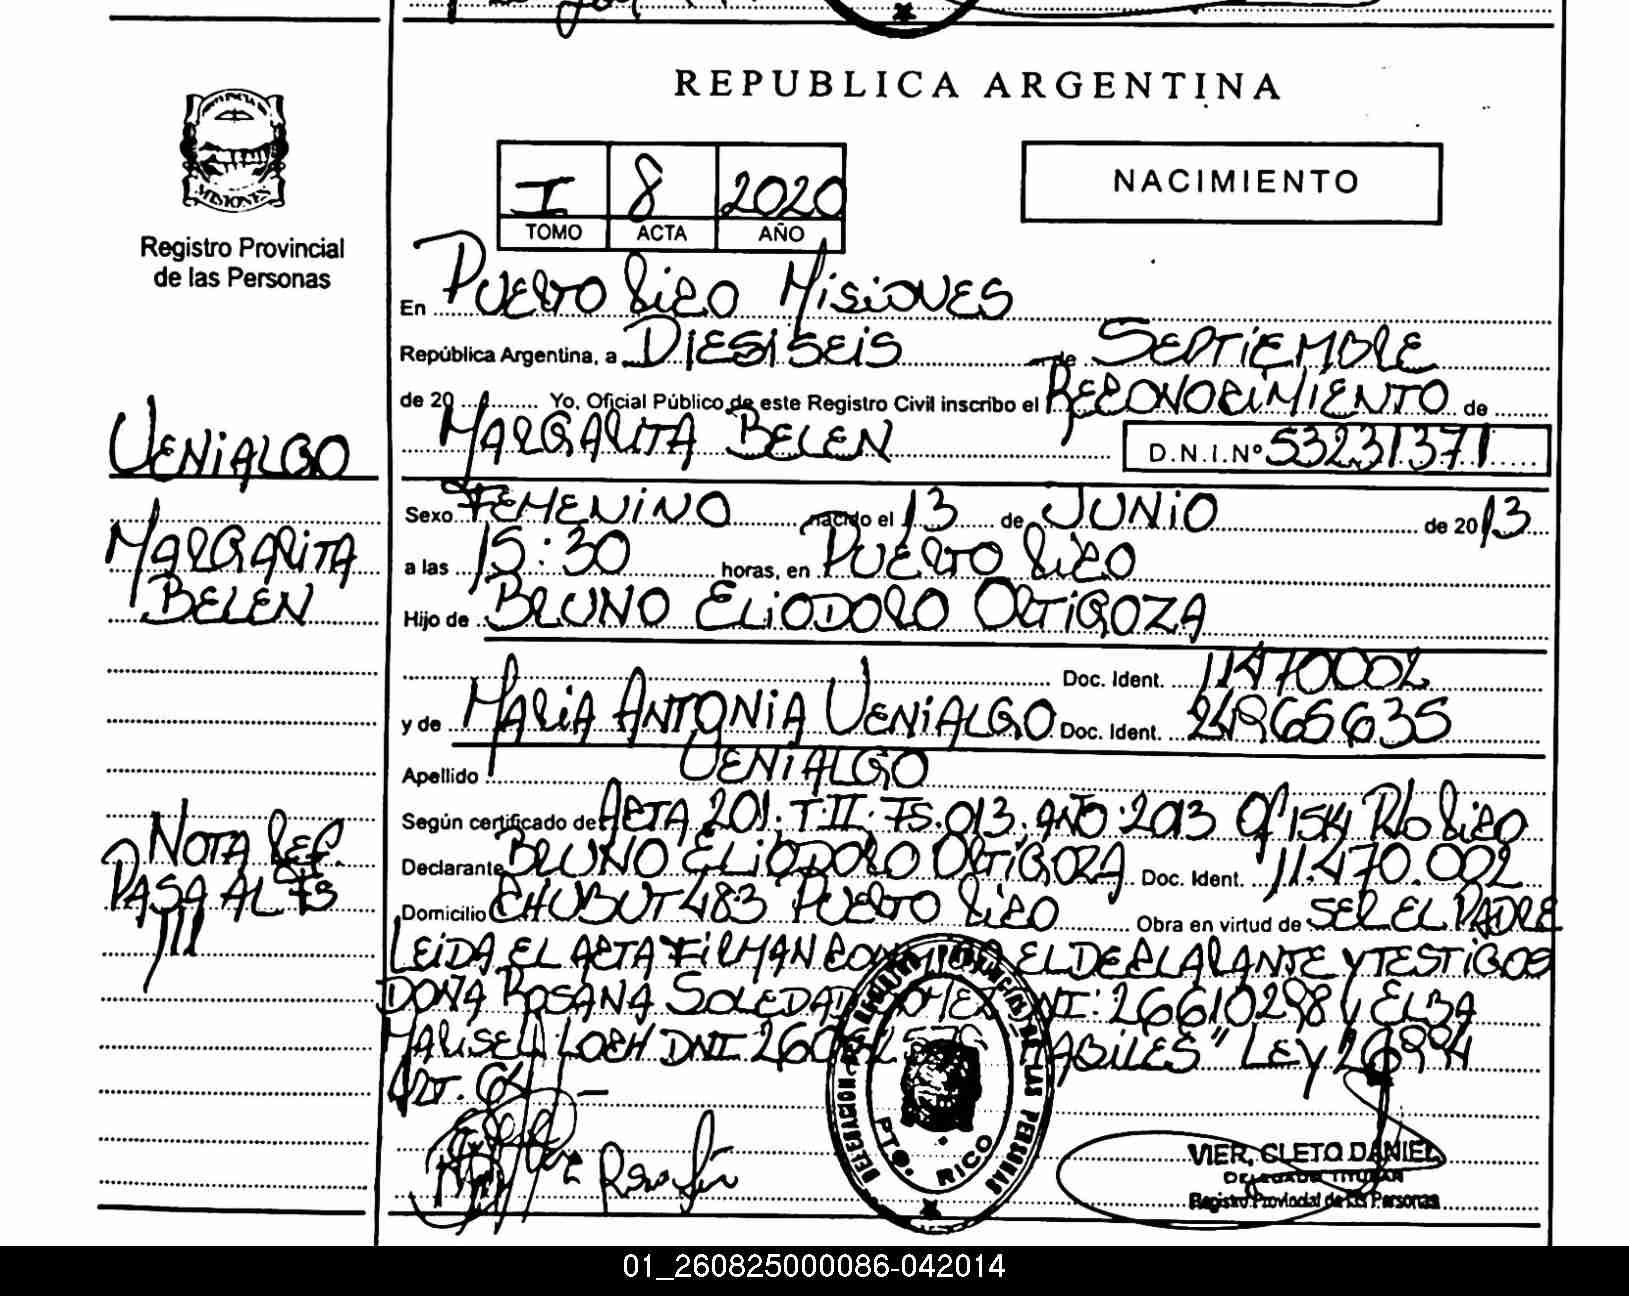 REPUBLICA ARGENTINA
PROVINCIA DE
MISIONES
Registro Provincial
de las Personas
I 8 2020
TOMO ACTA AÑO
NACIMIENTO
En PUERTO RICO MISIONES
República Argentina, a DIESISEIS de SEPTIEMBRE
de 20 Yo, Oficial Público de este Registro Civil inscribo el RECONOCIMIENTO de
MARGARITA BELEN D.N.I.Nº 53231371
VENIALGO
MARGARITA
BELEN
Sexo FEMENINO nacido el 13 de JUNIO de 2013
a las 15:30 horas, en PUERTO RICO
Hijo de BRUNO ELIODORO ORTIGOZA
Doc. Ident. 11470002
y de MARIA ANTONIA VENIALGO Doc. Ident. 24965635
Apellido VENIALGO
Según certificado de ACTA 201. T. II. FS. 013. AÑO: 2013 Of 1514 Pto Rico
Declarante BRUNO ELIODORO ORTIGOZA Doc. Ident. 11.470.002
Domicilio CHUBUT 483 PUERTO RICO Obra en virtud de SER EL PADRE
NOTA REF.
PASA AL FS
III
LEIDA EL ACTA FIRMAN CONMIGO EL DECLARANTE Y TESTIGOS
DOÑA ROSANA SOLEDAD GOMEZ DNI: 26610298 Y ELBA
MARISELA LOCH DNI "ABILES" LEY 26994
ART. 64 —
DELEGACION DEL REGISTRO PROVINCIAL DE LAS PERSONAS
PTO. RICO
VIER, CLETO DANIEL
DELEGADO TITULAR
Registro Provincial de las Personas
01_260825000086-042014